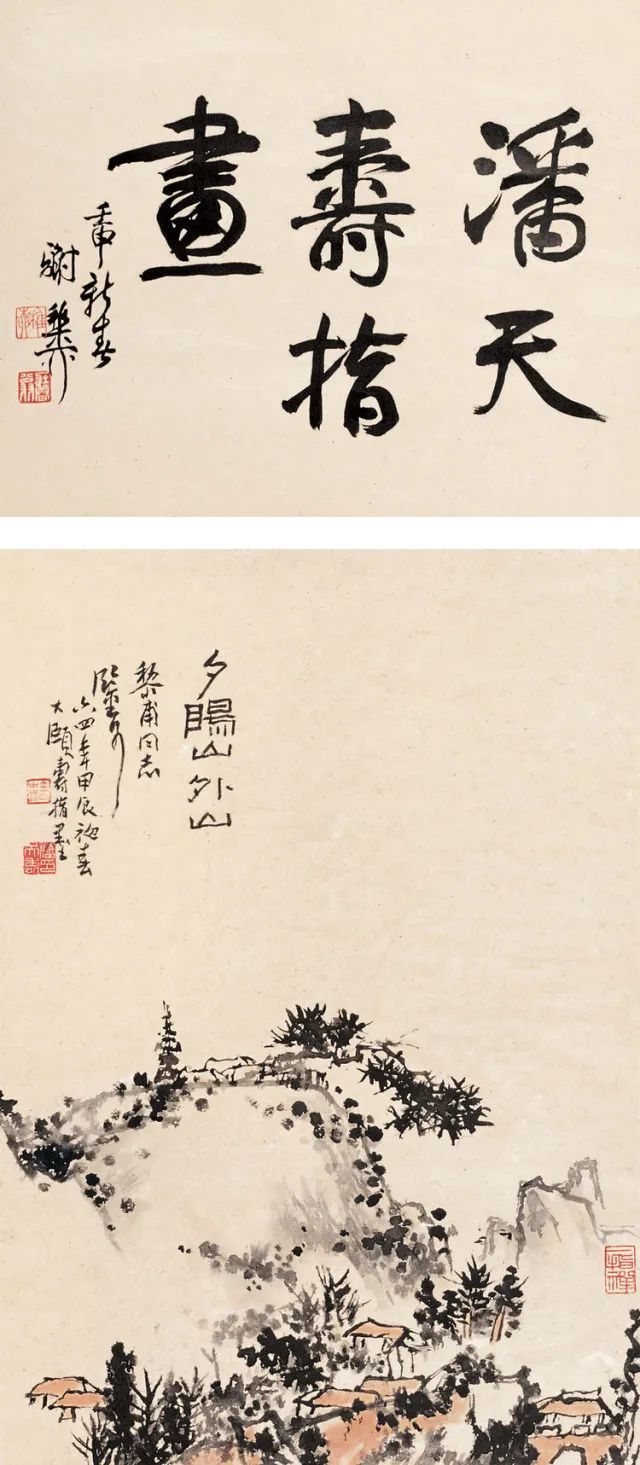 潘天
壽指
畫
壬申新春
謝稚柳
夕陽山外山
黎甫同志
鑒
六四年甲辰初春
大頤壽指墨